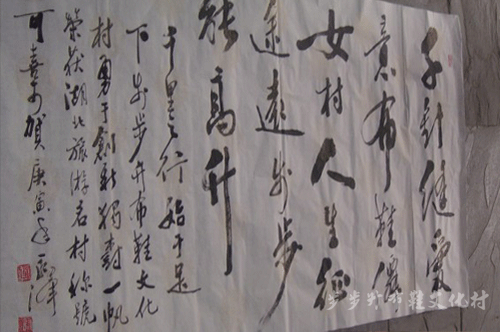 千針缝爱
意布鞋僊
女村人生征
途遠步步
能高升
千里之行始于足
下步步升布鞋文化
村勇于創新獨树一帜
荣获湖北旅游名村称號
可喜可贺 庚寅年
步步升布鞋文化村